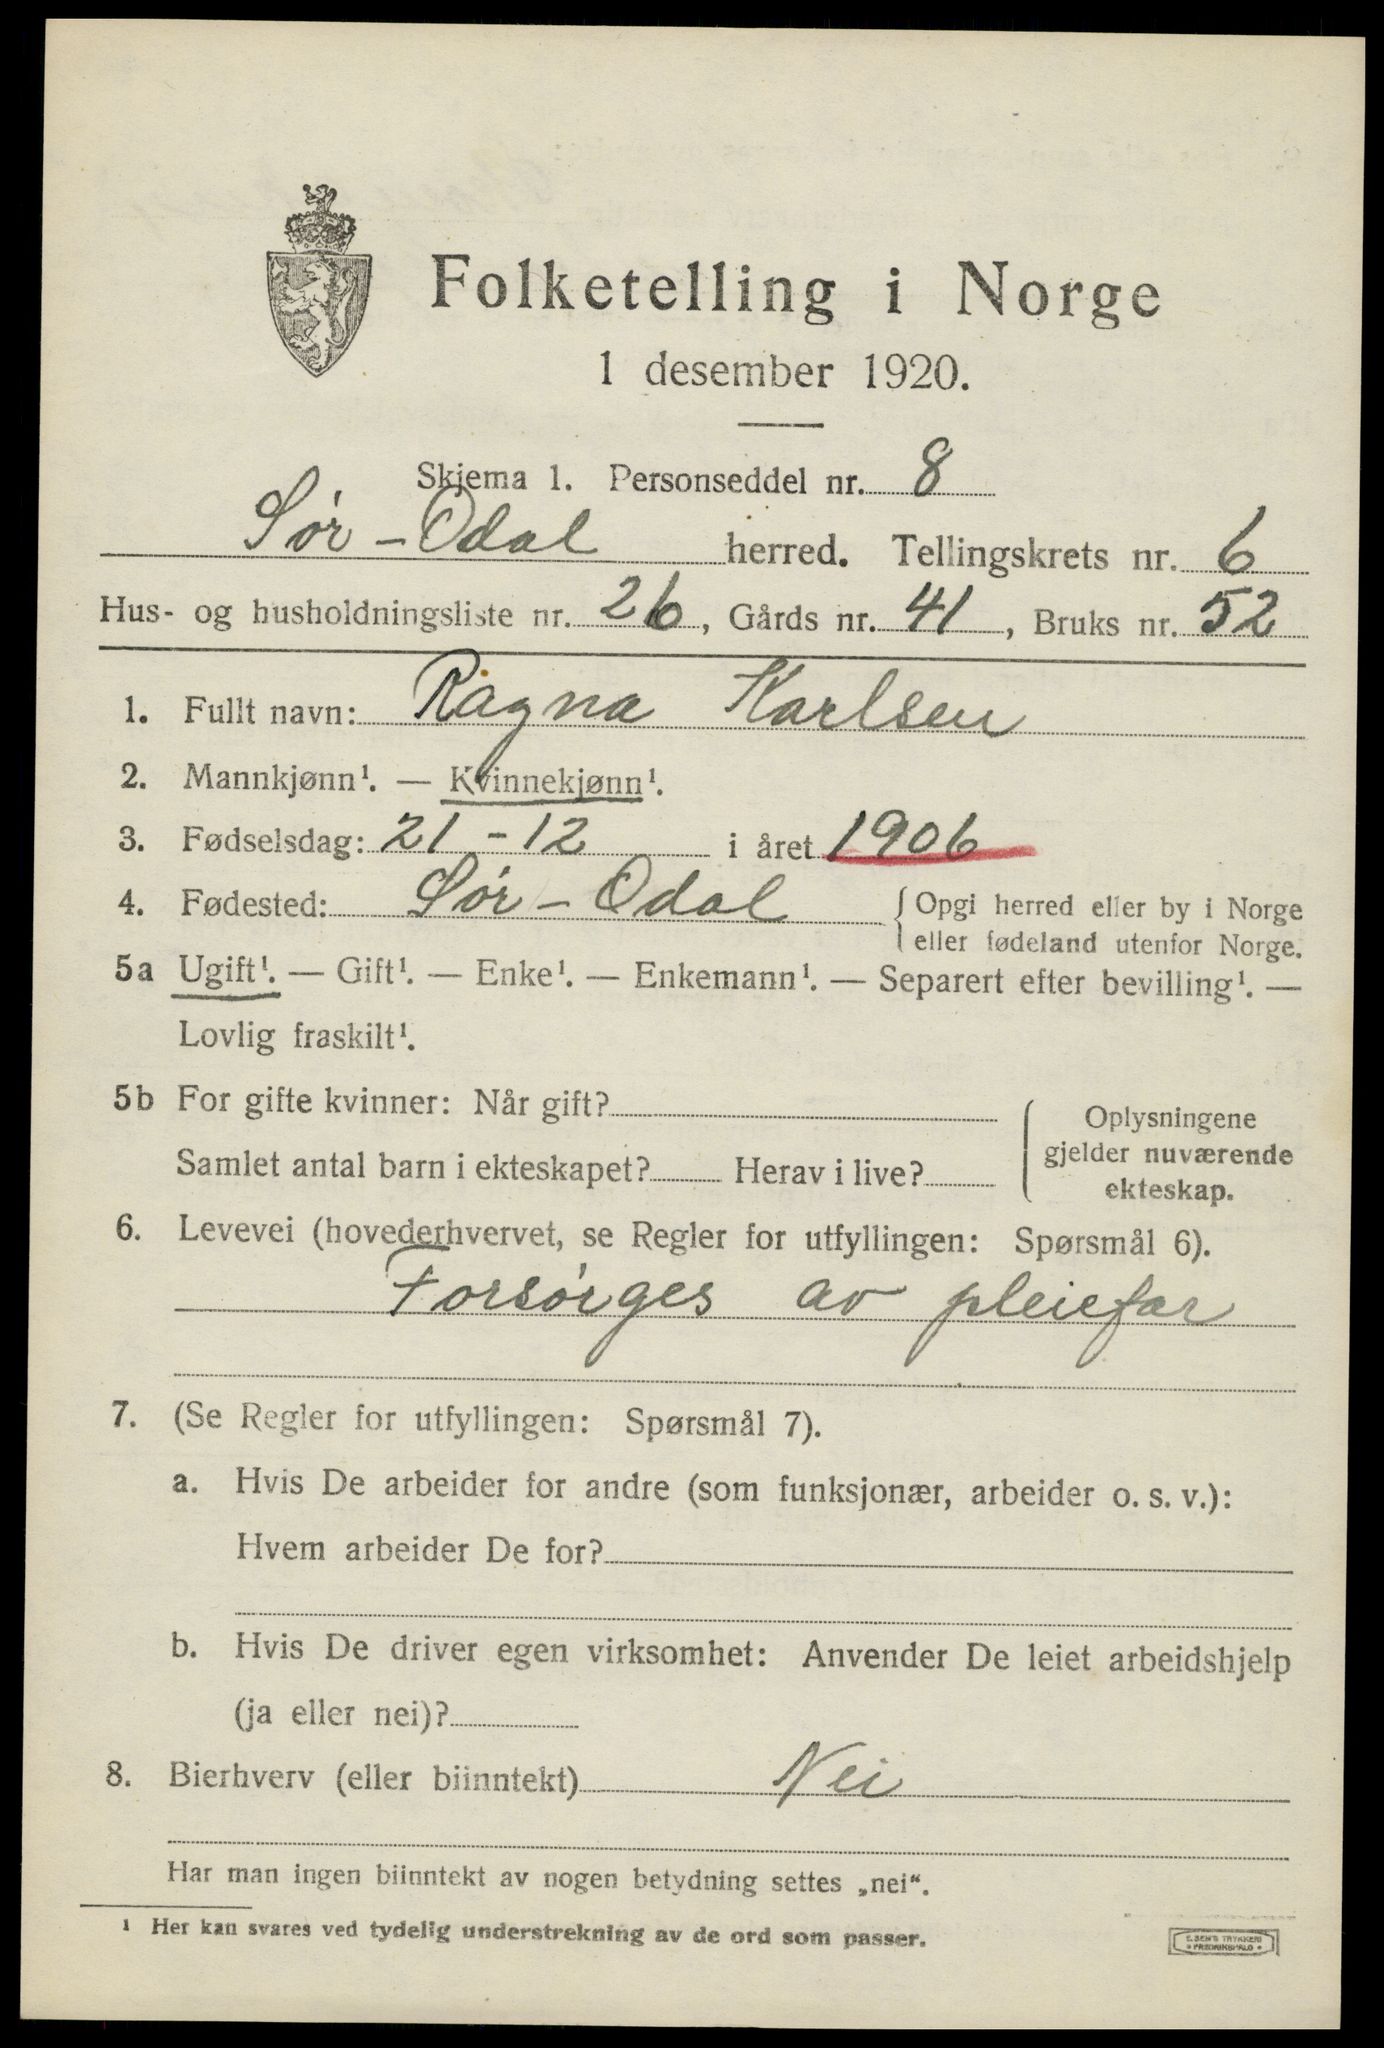 Folketelling i Norge
1 desember 1920.
Skjema 1. Personseddel nr. 8
Sør-Odal herred. Tellingskrets nr. 6
Hus- og husholdningsliste nr. 26, Gårds nr. 41, Bruks nr. 52
1. Fullt navn: Ragna Karlsen
2. Mannkjønn¹. — Kvinnekjønn¹.
3. Fødselsdag: 21-12 i året 1906
4. Fødested: Sør-Odal { Opgi herred eller by i Norge
eller fødeland utenfor Norge.
5a Ugift¹. — Gift¹. — Enke¹. — Enkemann¹. — Separert efter bevilling¹. —
Lovlig fraskilt¹.
5b For gifte kvinner: Når gift?
Samlet antal barn i ekteskapet? Herav i live?
Oplysningene
gjelder nuværende
ekteskap.
6. Levevei (hovederhvervet, se Regler for utfyllingen: Spørsmål 6).
Forsørges av pleiefar
7. (Se Regler for utfyllingen: Spørsmål 7).
a. Hvis De arbeider for andre (som funksjonær, arbeider o. s. v.):
Hvem arbeider De for?
b. Hvis De driver egen virksomhet: Anvender De leiet arbeidshjelp
(ja eller nei)?
8. Bierhverv (eller biinntekt) Nei
Har man ingen biinntekt av nogen betydning settes „nei“.
¹ Her kan svares ved tydelig understrekning av de ord som passer.